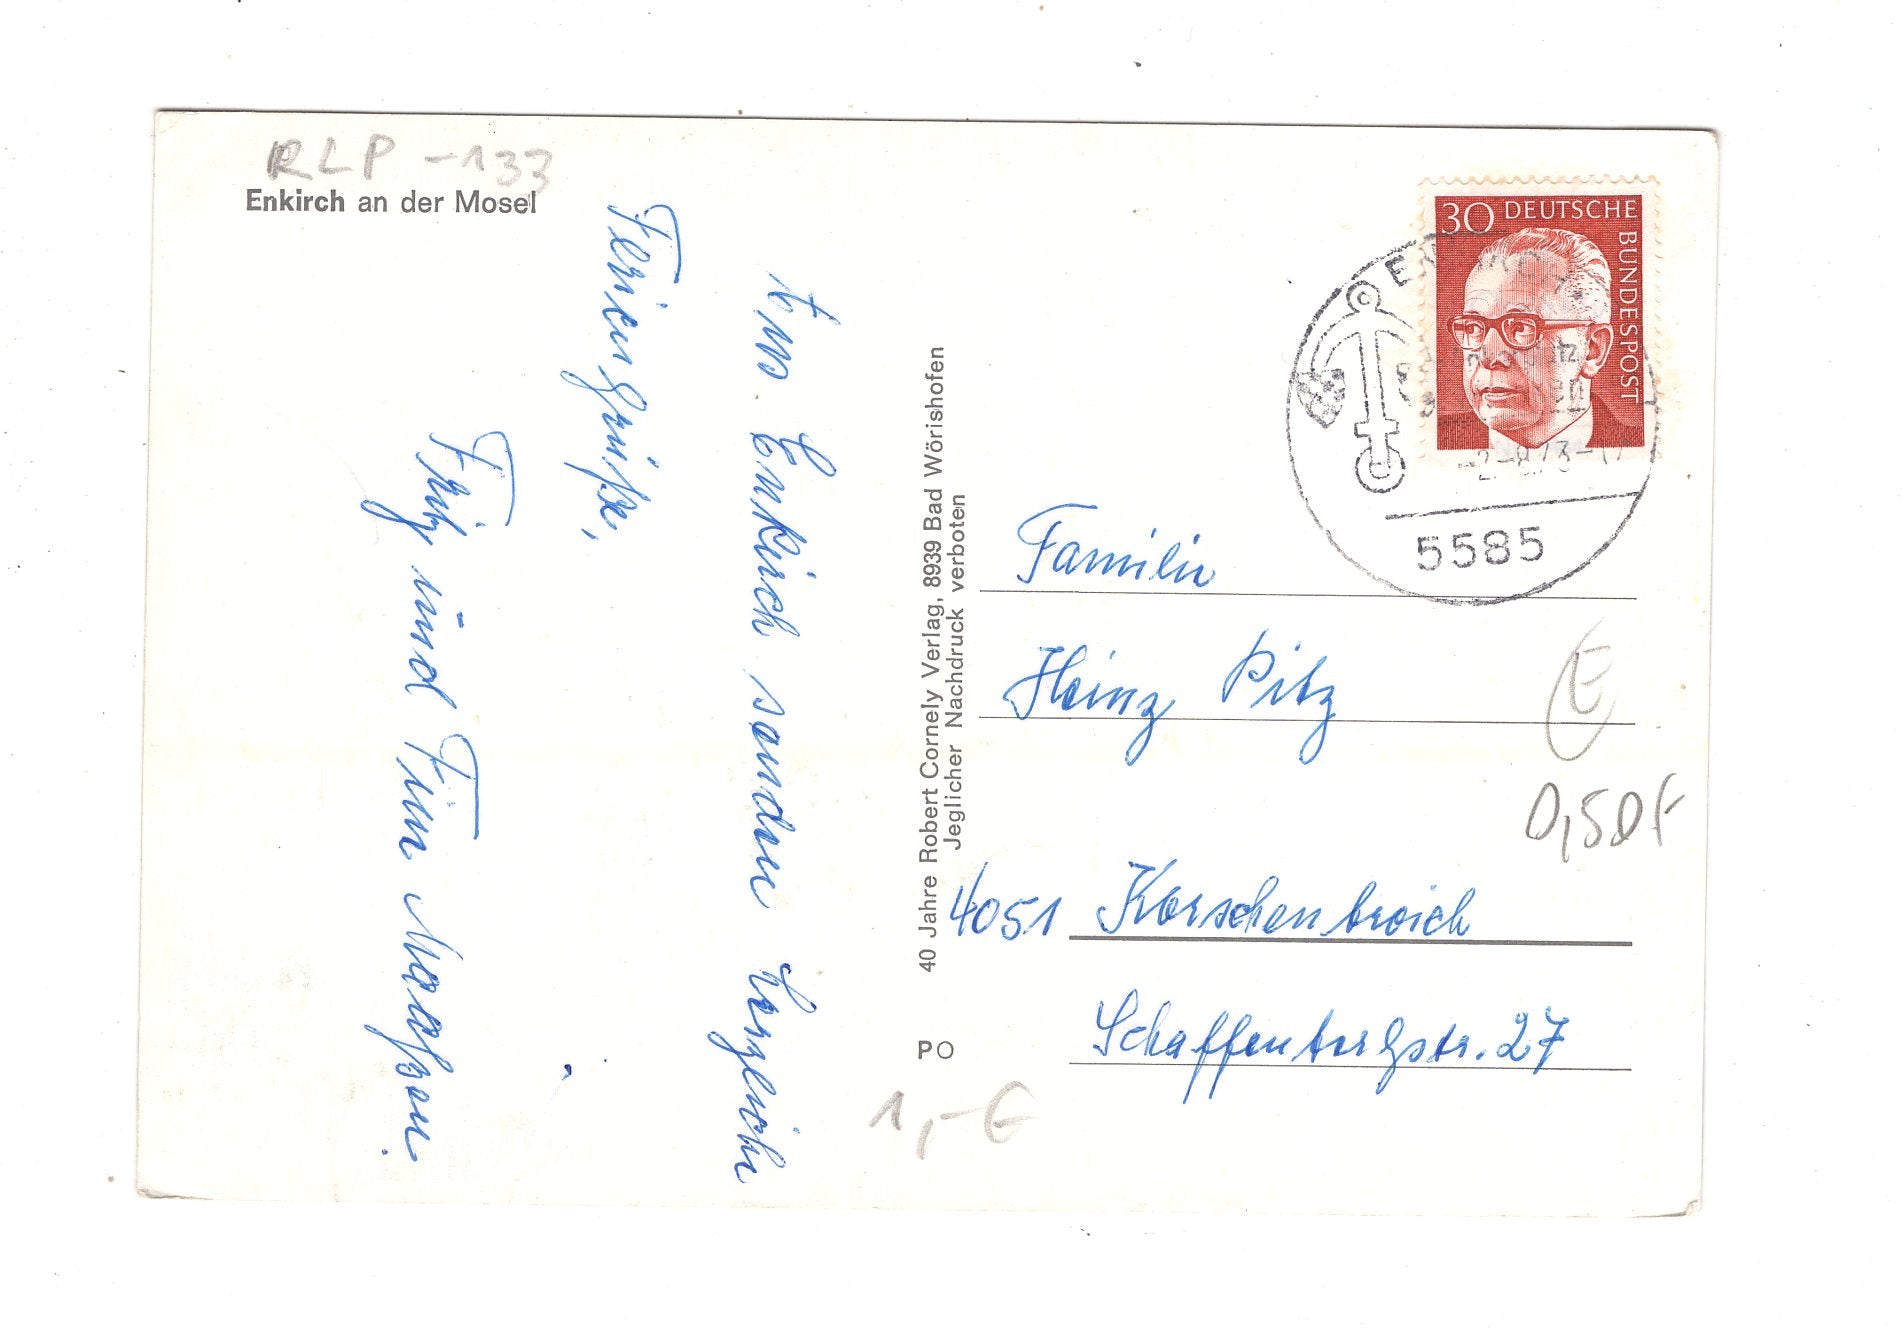 RLP -133
Enkirch an der Mosel
Aus Enkirch senden herzliche
Feriengrüße,
Fritz und Finn
40 Jahre Robert Cornely Verlag, 8939 Bad Wörishofen
Jeglicher Nachdruck verboten
PO
1,-€
30 DEUTSCHE
BUNDESPOST
5585
Familie
Heinz Pitz
E
0,50€
4051 Korschenbroich
Schaffenbergstr. 27